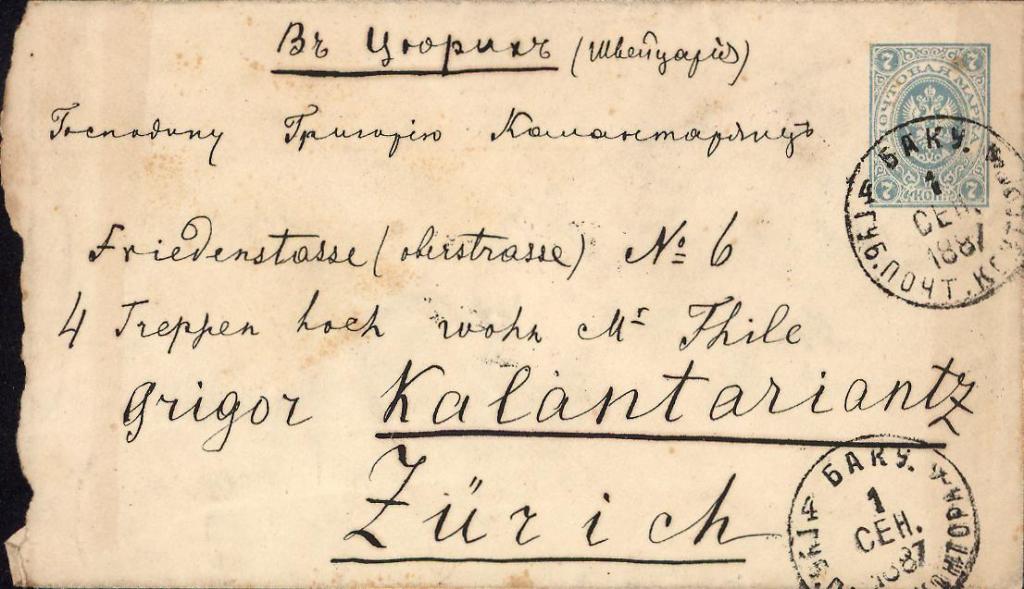 Въ Цюрихъ (Швейцарія)
Господину Григорію Калантарянцъ
Friedenstasse (oberstrasse) № 6
4 Treppen hoch wohn Mr Thile
Grigor Kalantariantz
Zürich
7 7
ПОЧТОВАЯ МАРКА
7 7
7 КОП.
БАКУ.
1
СЕН.
1887
ГУБ. ПОЧТ. КОНТОРА
БАКУ.
1
СЕН.
1887